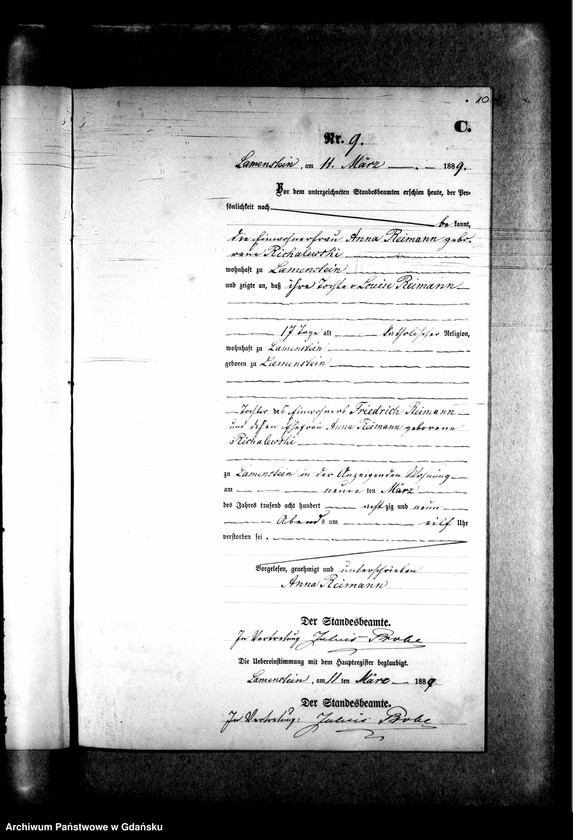 10
C.
Nr. 9.
Lamenstein, am 11. März 1889.
Vor dem unterzeichneten Standesbeamten erschien heute, der Per-
sönlichkeit nach
be kannt,
die Einwohnerfrau Anna Reimann gebo-
rene Richalewski
wohnhaft zu Lamenstein
und zeigte an, daß ihre Tochter Louise Reimann
17 Tage alt katholischer Religion,
wohnhaft zu Lamenstein
geboren zu Lamenstein
Tochter des Einwohners Friedrich Reimann
und dessen Ehefrau Anna Reimann geborene
Richalewski
zu Lamenstein in der Anzeigenden Wohnung
am neun ten März
des Jahres tausend acht hundert acht zig und neun
Abends um eilf Uhr
verstorben sei.
Vorgelesen, genehmigt und unterschrieben
Anna Reimann
Der Standesbeamte.
In Vertretung Julius
Die Uebereinstimmung mit dem Hauptregister beglaubigt.
Lamenstein, am 11 ten März 1889.
Der Standesbeamte.
In Vertretung: Julius
Archiwum Państwowe w Gdańsku